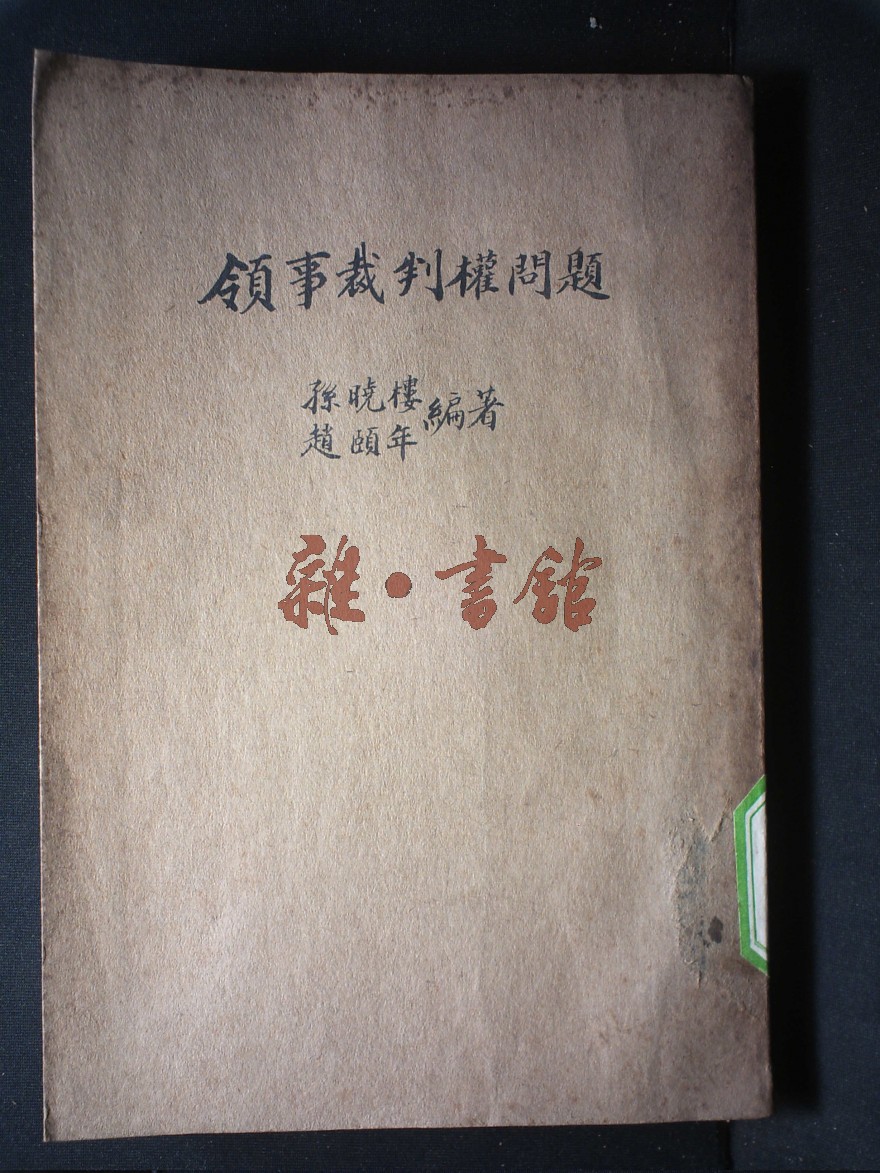 領事裁判權問題
孫曉樓
趙頤年
編著
雜·書館